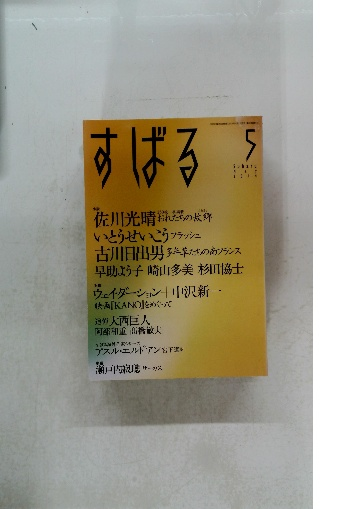 すばる
5
佐川光晴 おれたちの故郷
いとうせいこう フラッシュ
古川日出男
早助よう子 崎山多美 杉田協士
ウェイ・ダーション+中沢新一
映画『KANO』をめぐって
追悼 大西巨人
阿部和重 高橋敏夫
アスル・エルドアン
瀬戸内寂聴